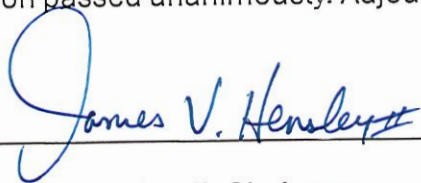 passed unanimously. Adjou
James V. Hensley II